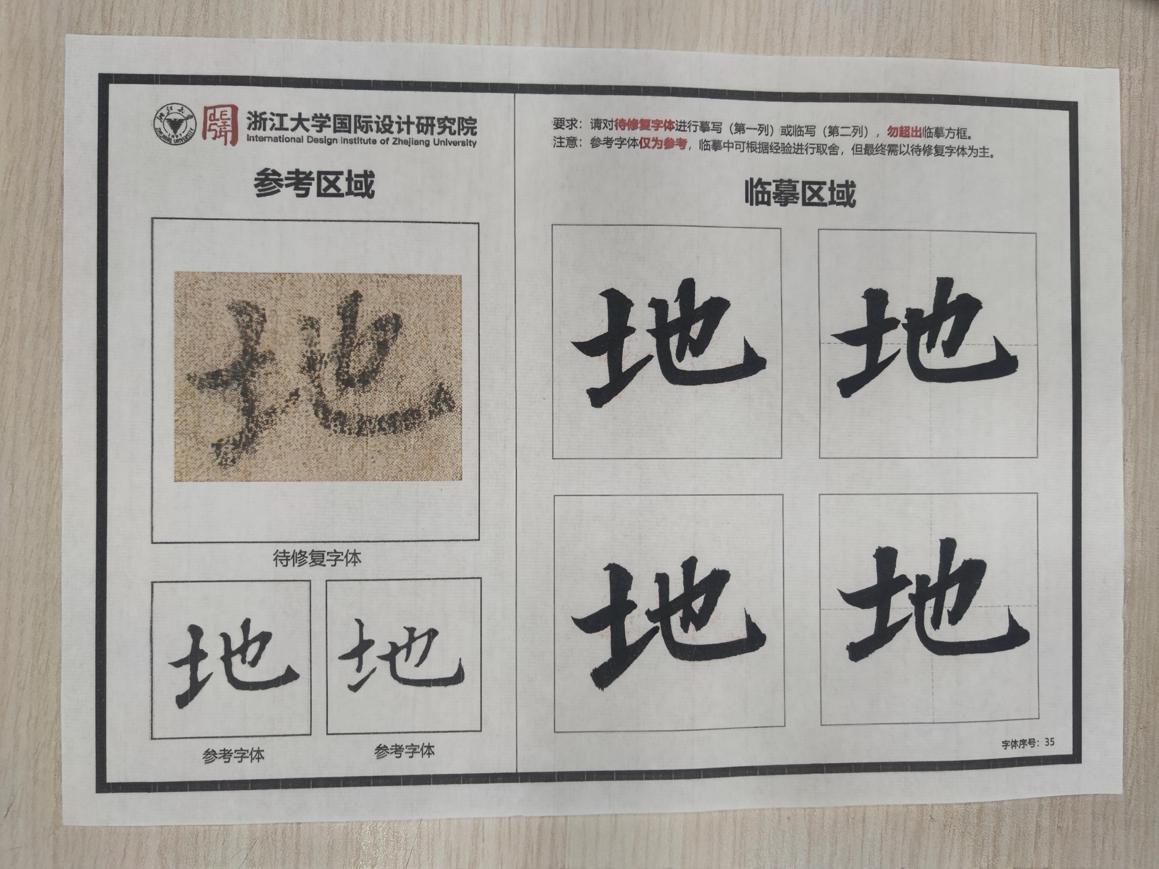 浙江大学国际设计研究院
International Design Institute of Zhejiang University
参考区域
地
待修复字体
地 地
参考字体 参考字体
要求：请对待修复字体进行摹写（第一列）或临写（第二列），勿超出临摹方框。
注意：参考字体仅为参考，临摹中可根据经验进行取舍，但最终需以待修复字体为主。
临摹区域
地 地
地 地
字体序号：35